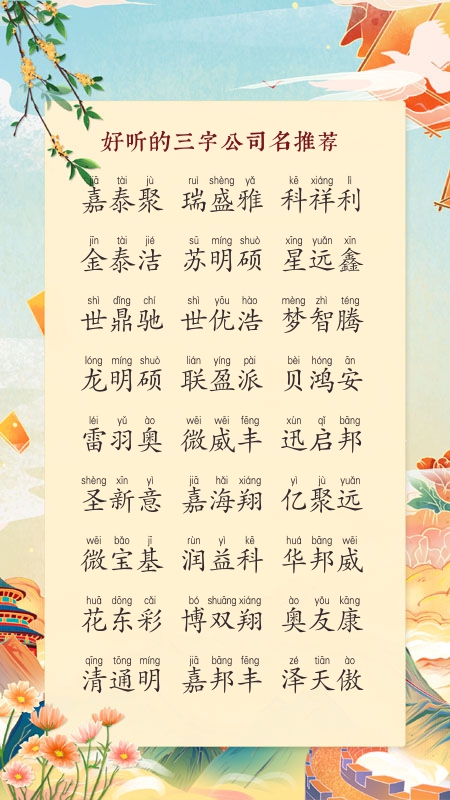 好听的三字公司名推荐
jiā tài jù ruì shèng yǎ kē xiáng lì
嘉泰聚 瑞盛雅 科祥利
jīn tài jié sū míng shuò xīng yuǎn xīn
金泰洁 苏明硕 星远鑫
shì dǐng chí shì yōu hào mèng zhì téng
世鼎驰 世优浩 梦智腾
lóng míng shuò lián yíng pài bèi hóng ān
龙明硕 联盈派 贝鸿安
léi yǔ ào wēi wēi fēng xùn qǐ bāng
雷羽奥 微威丰 迅启邦
shèng xīn yì jiā hǎi xiáng yì jù yuǎn
圣新意 嘉海翔 亿聚远
wēi bǎo jī rùn yì kē huá bāng wēi
微宝基 润益科 华邦威
huā dōng cǎi bó shuāng xiáng ào yǒu kāng
花东彩 博双翔 奥友康
qīng tōng míng jiā bāng fēng zé tiān ào
清通明 嘉邦丰 泽天傲